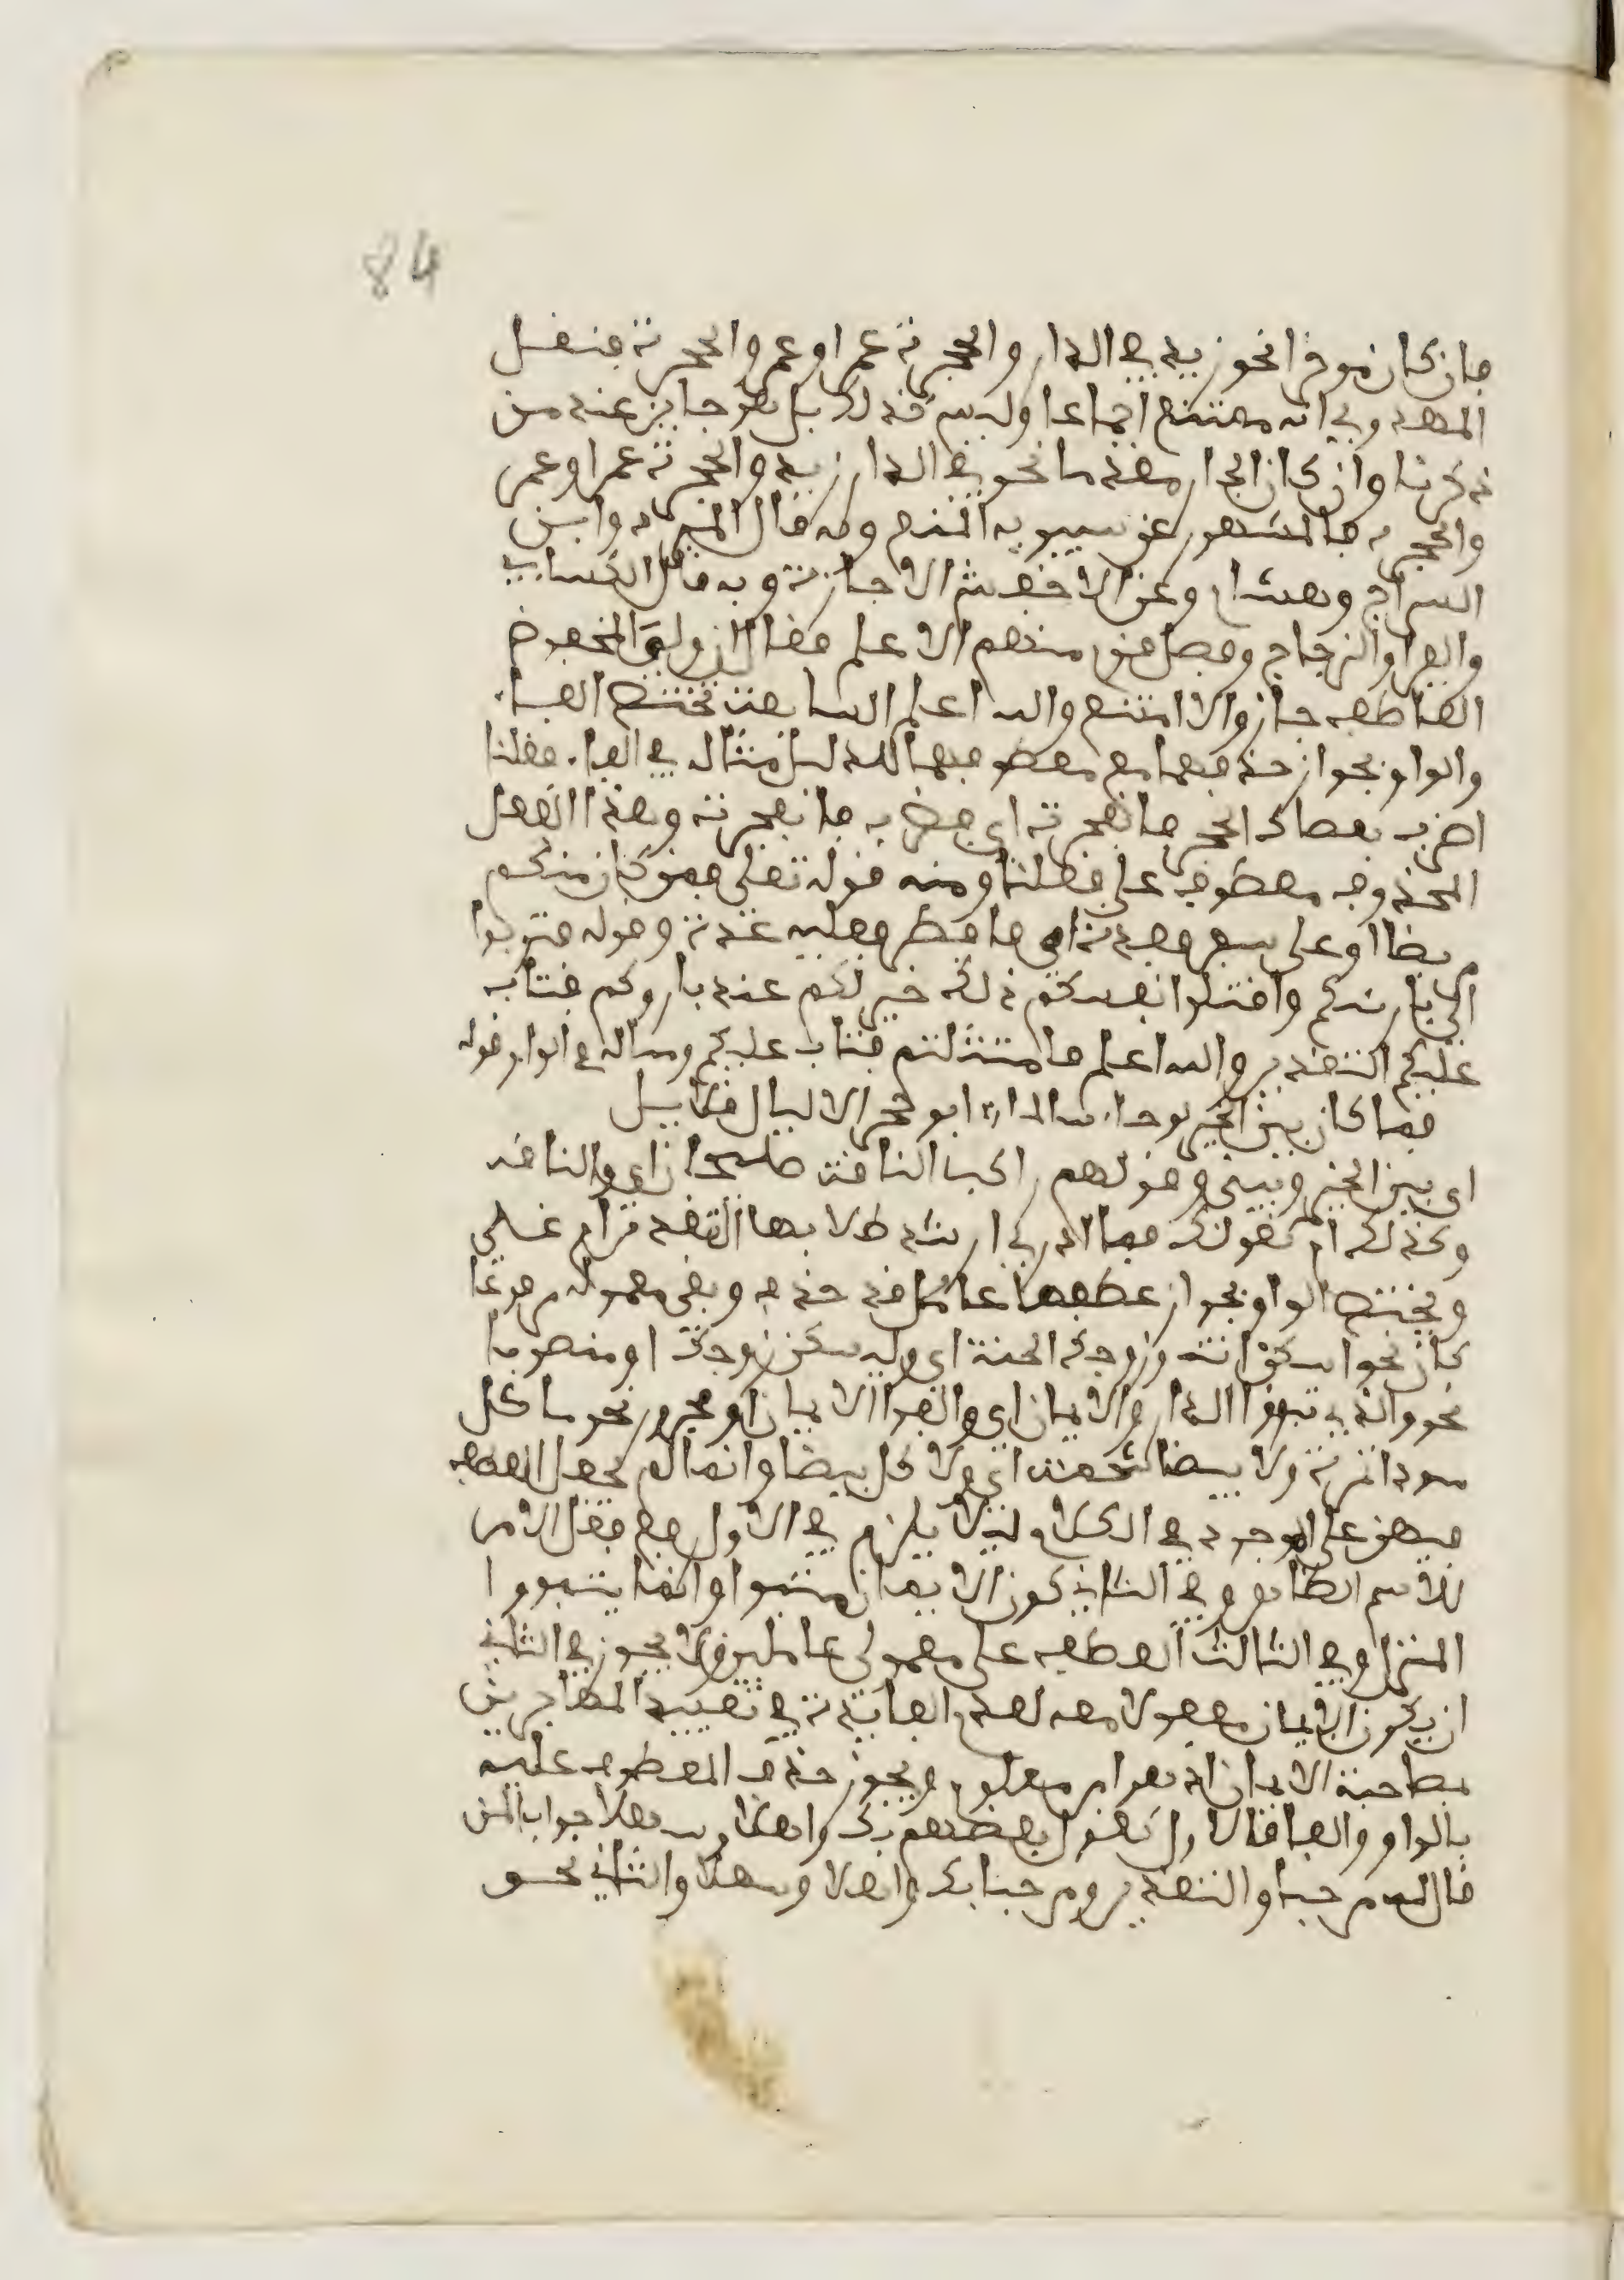 84
فإن كان مؤخرا نحو زيد في الدار والحجرة عمرا وعمرو الحجرة فنقل
المهدوي أنه ممتنع اجماعا وليس كذلك بل هو جايز عند من
ذكرنا وإن كان الجار مقدما نحو في الدار زيد والحجرة عمرا وعمر
والحجرة فالمشهور عن سيبويه المنع وبه قال المبرد وابن
السراج وهشام وعن الاخفش الاجازة وبه قال الكسايي
والفرا والزجاج وفصل قوم منهم الاعلم فقال ان ولي المخفوض
العاطف جاز والا امتنع والله اعلم السابعة تختص الفاء
والواو بجواز حذفهما مع معطوفهما لدليل مثاله في الفاء فقلنا
اضرب بعصاك الحجر فانفجرت اي فضرب فانفجرت وهذا الفعل
المحذوف معطوف على فقلنا ومنه قوله تعلى فمن كان منكم
مريضا او على سفر فعدة اي فافطر فعليه عدة وقوله فتوبوا
الى باريكم واقتلوا انفسكم ذلكم خير لكم عند باريكم فتاب
عليكم التقدير والله اعلم فامتثلتم فتاب عليكم ومثاله في الواو قوله
فما كان بين الخير لو جاء سالما ابو حجر الا ليال قلايل
اي بين الخير وبيني وقولهم راكب الناقة طليحان اي والناقة
وكذلك ام كقولك فما ادري ارشد طلابها التقدير ام غي
وتختص الواو بجواز عطفها عاملا قد حذف وبقي معموله مرفوعا
كان نحو اسكن انت وزوجك الجنة اي وليسكن زوجك او منصوبا
نحو والذين تبوءوا الدار والايمان اي والفوا الايمان او مجرور نحو ما كل
سوداء تمرة ولا بيضا شحمة اي ولا كل بيضا وانما لم يجعل العطف
فيهن على الموجود في الكلام ليلا يلزم في الاول رفع فعل الامر
للاسم الظاهر وفي الثاني كون الايمان متبوا وانما يتبووا
المنزل وفي الثالث العطف على معمولي عاملين ولا يجوز في الثاني
ان يكون الايمان مفعولا معه لعدم الفايدة في تقييد المهاجرين
بمصاحبة الايمان اذ هو امر معلوم ويجوز حذف المعطوف عليه
بالواو والفا فالاول كقول بعضهم بك واهلا وسهلا جواب لمن
قال له مرحبا والتقدير ومرحبا بك واهلا وسهلا والثاني نحو